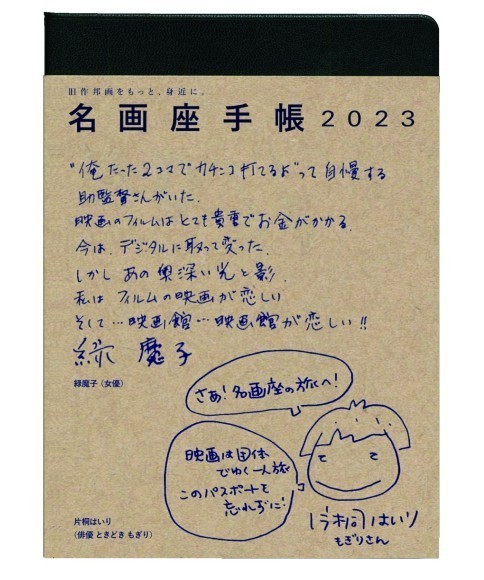 旧作邦画をもっと、身近に。
名画座手帳2023
"俺たった2コマでカチンコ打てるよ"って自慢する
助監督さんがいた.
映画のフィルムはとても貴重でお金がかかる.
今は、デジタルに取って変った.
しかし あの奥深い光と影.
私は フィルムの映画が恋しい
そして…映画館…映画館が恋しい!!
緑 魔子
緑魔子（女優）
さあ!名画座の旅へ!
映画は団体
でゆく一人旅
このパスポートを
忘れずに!
片桐はいり
もぎりさん
片桐はいり
（俳優 ときどき もぎり）